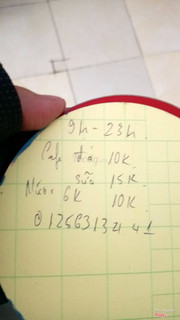 9h - 23h
Cafe đá 10K
sữa 15K
Nước 6K 10K
01256313441